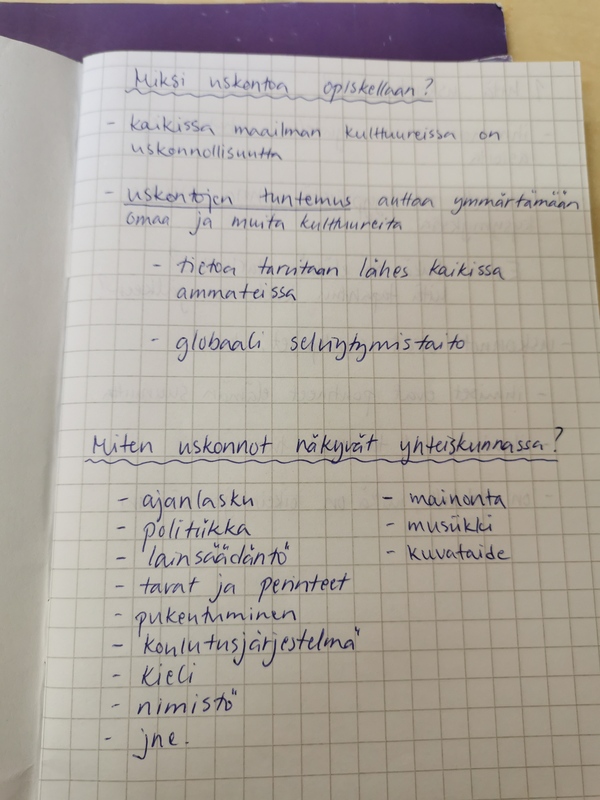 Miksi uskontoa opiskellaan?
- kaikissa maailman kulttuureissa on
uskonnollisuutta
- uskontojen tuntemus auttaa ymmärtämään
omaa ja muita kulttuureita
- tietoa tarvitaan lähes kaikissa
ammateissa
- globaali selviytymistaito
Miten uskonnot näkyvät yhteiskunnassa?
- ajanlasku
- politiikka
- lainsäädäntö
- tavat ja perinteet
- pukeutuminen
- koulutusjärjestelmä
- kieli
- nimistö
- jne.
- mainonta
- musiikki
- kuvataide